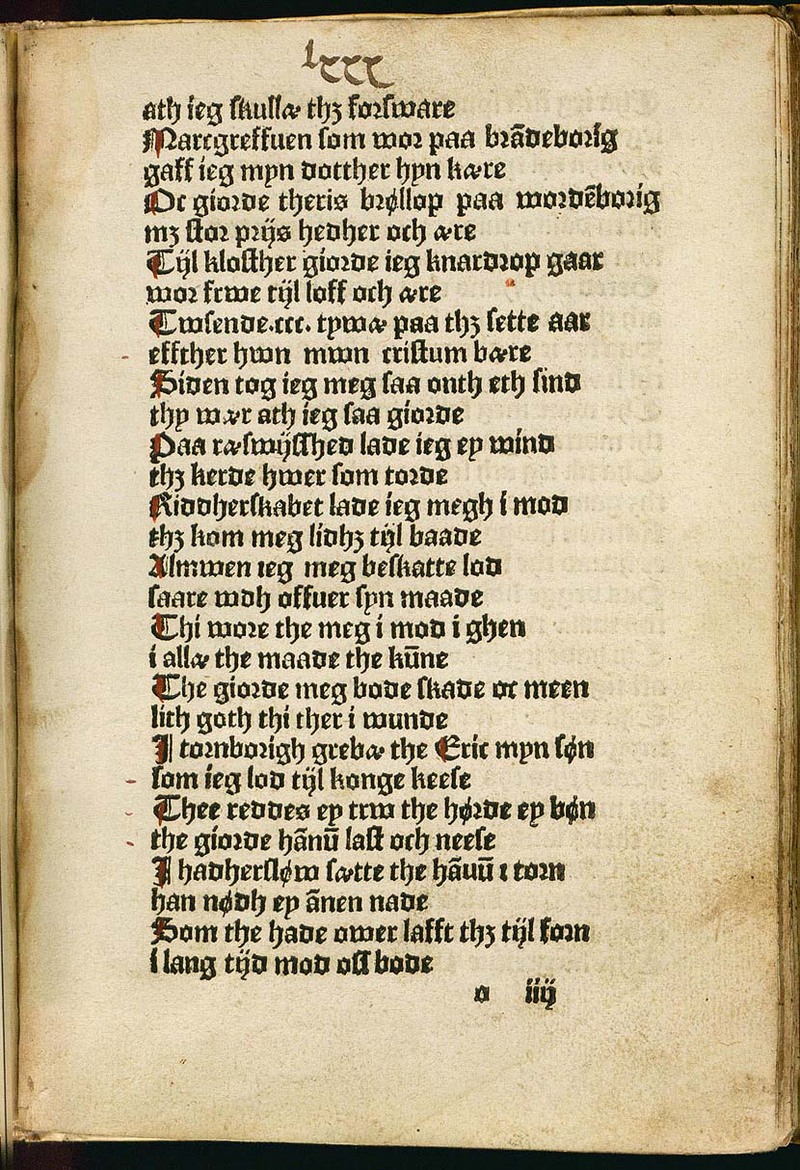 lxxx
ath ieg skullæ thꝫ forsware
Marcgreffuen som wor paa brādeborig
gaff ieg myn dotther hyn kære
Oc giorde theris brøllop paa wordēborig
mꝫ stor prijs hedher och ære
Tijl klosther giorde ieg knardrop gaar
wor frwe tijl loff och ære
Twsende.ccc. tywæ paa thꝫ sette aar
effther hwn mwn cristum bære
Siden tog ieg meg saa onth eth sind
thy wær ath ieg saa giorde
Paa ræswijsshed lade ieg ey wind
thꝫ kerde hwer som torde
Riddherskabet lade ieg megh i mod
thꝫ kom meg lidhꝫ tijl baade
Almwen ieg meg beskatte lod
saare wdh offuer syn maade
Thi wore the meg i mod i ghen
i allæ the maade the kūne
The giorde meg bode skade oc meen
lith goth thi ther i wunde
I tornborigh grebæ the Eric myn søn
som ieg lod tijl konge keese
Thee reddes ey trw the hørde ey bøn
the giorde hānū last och neese
I hadhersløw sætte the hāuū i torn
han nødh ey ānen nade
Som the hade ower lafft thꝫ tijl forn
i lang tijd mod oss bode
o iiij